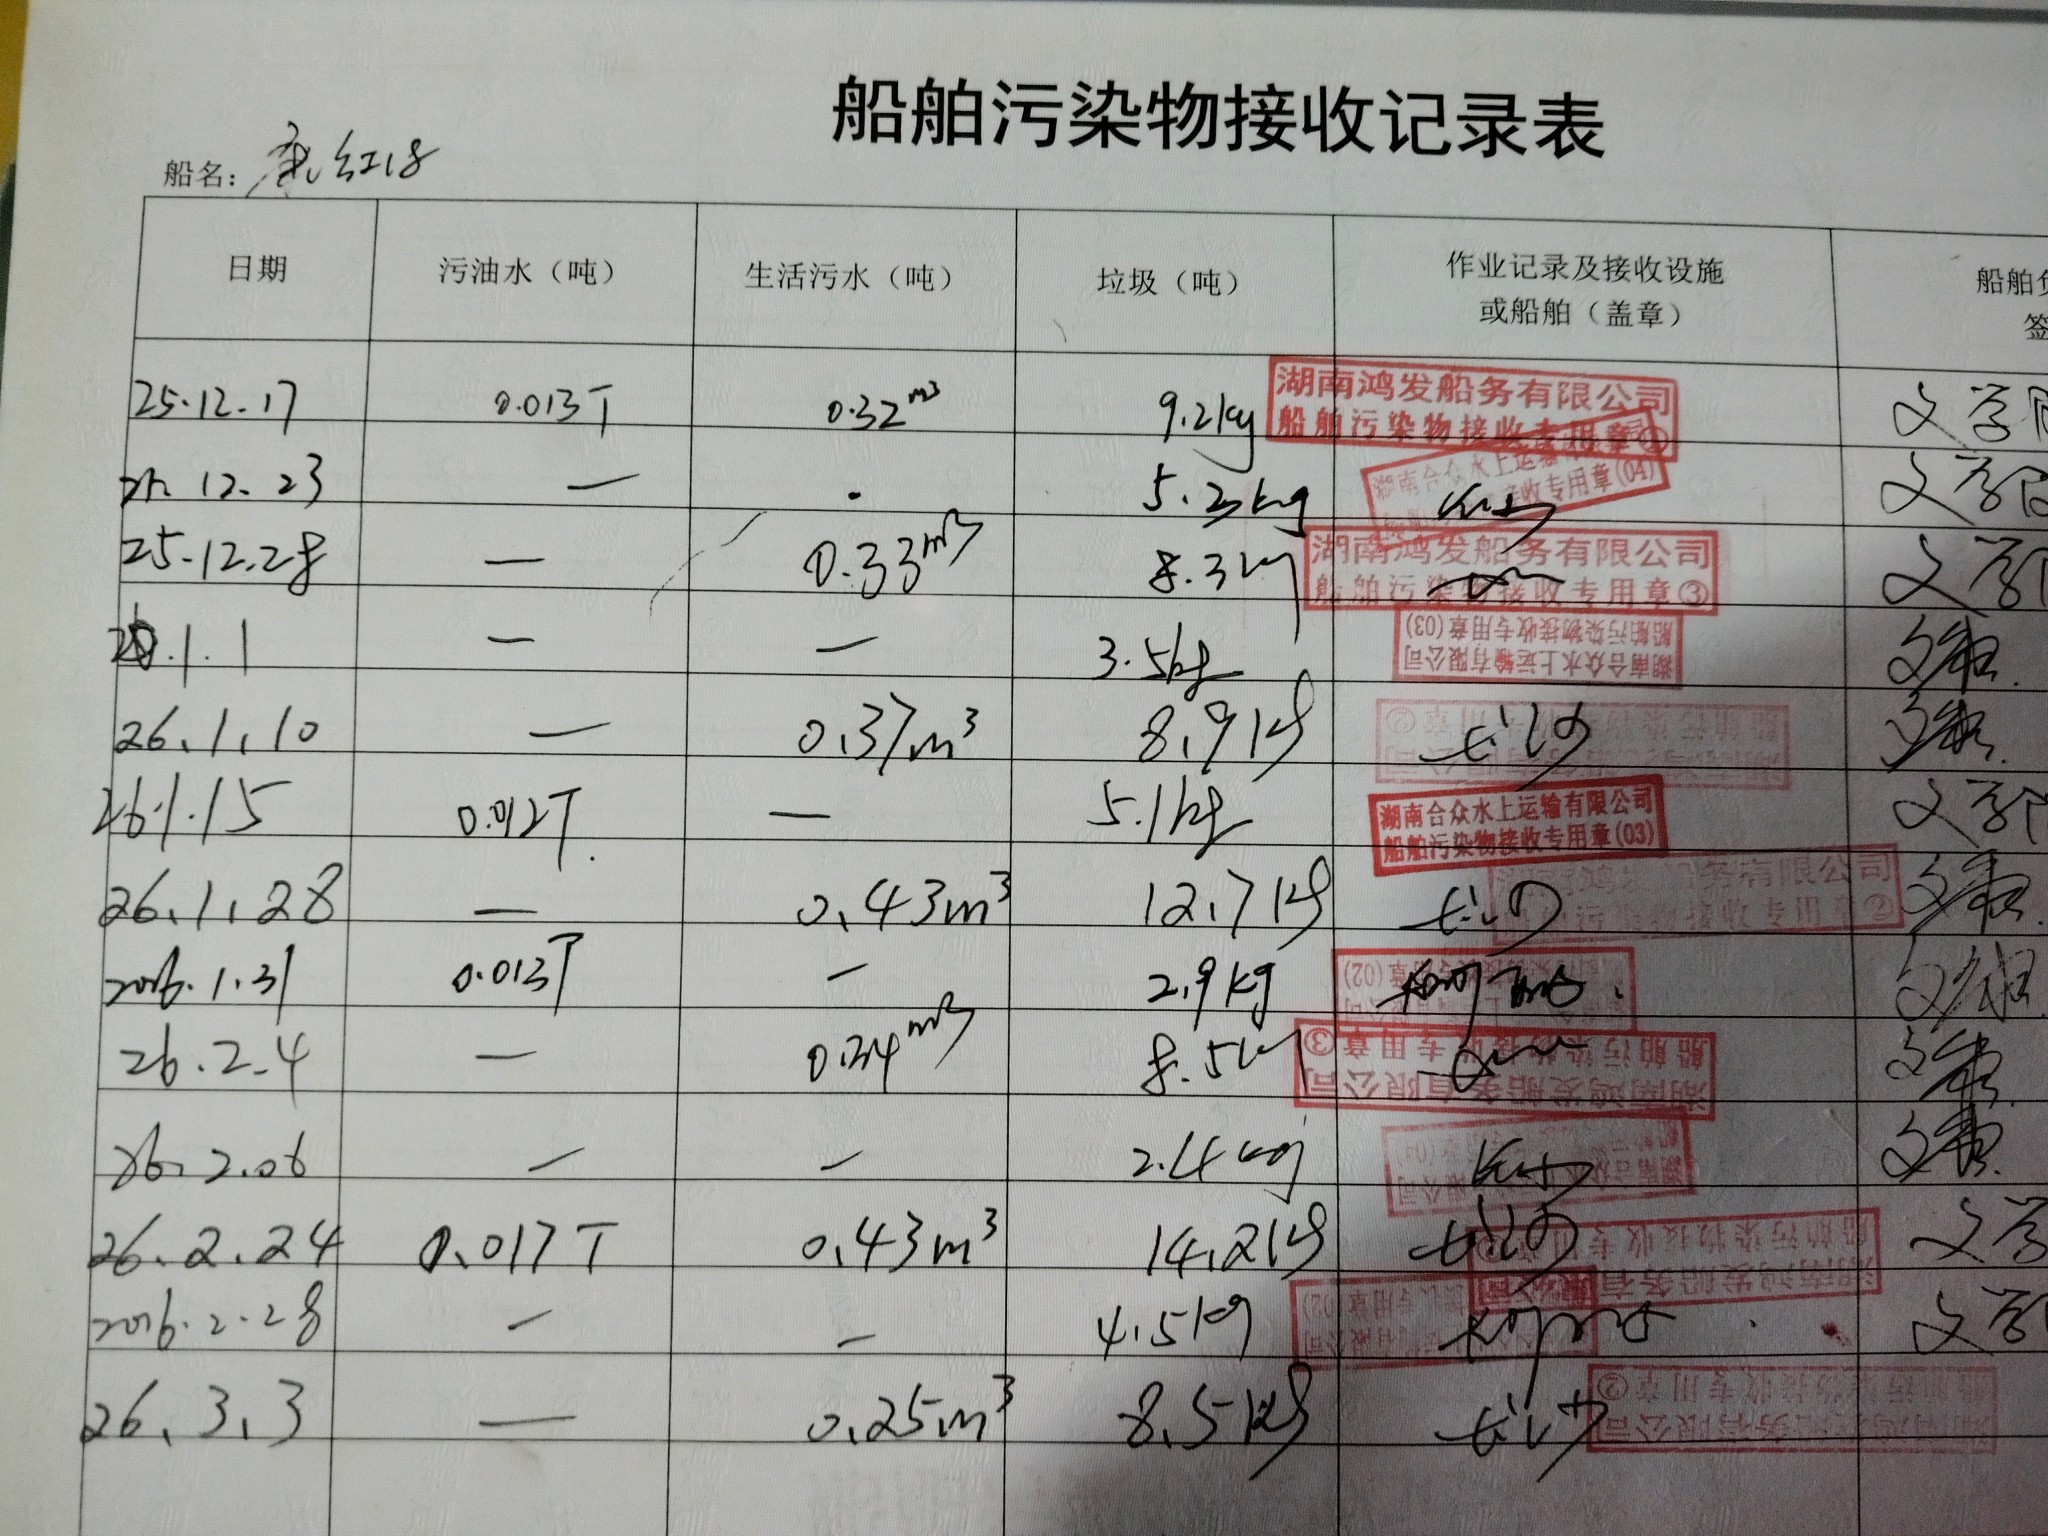 船舶污染物接收记录表
船名: 红18
日期 污油水（吨） 生活污水（吨） 垃圾（吨） 作业记录及接收设施 船舶
或船舶（盖章） 签
25.12.17 0.013T 0.32m³ 9.2kg 湖南鸿发船务有限公司 文学
船舶污染物接收专用章
12.23 — 5.3kg 湖南合众水上运输 文学
接收专用章(04)
25.12.28 — 0.33m³ 8.3kg 湖南鸿发船务有限公司 文学
船舶污染物接收专用章③
.1.1 — — 3.5kg 湖南合众水上运输有限公司 文
船舶污染物接收专用章(03)
26.1.10 — 0.37m³ 8.9kg 文
26.1.15 0.012T — 5.1kg 湖南合众水上运输有限公司 文学
船舶污染物接收专用章(03)
26.1.28 — 0.43m³ 12.7kg 船务有限公司 文
污染物接收专用章②
2026.1.31 0.013T — 2.9kg (02) 文
26.2.4 — 0.34m³ 8.5kg 湖南鸿发船务有限公司 文
船舶污染物接收专用章③
26.2.06 — — 2.4kg 湖南合众 文
26.2.24 0.017T 0.43m³ 14.2kg 湖南鸿发船务有限公司 文学
船舶污染物接收专用章
2026.2.28 — — 4.5kg (02) 文学
26.3.3 — 0.25m³ 8.5kg 湖南鸿发船务有限公司
船舶污染物接收专用章②